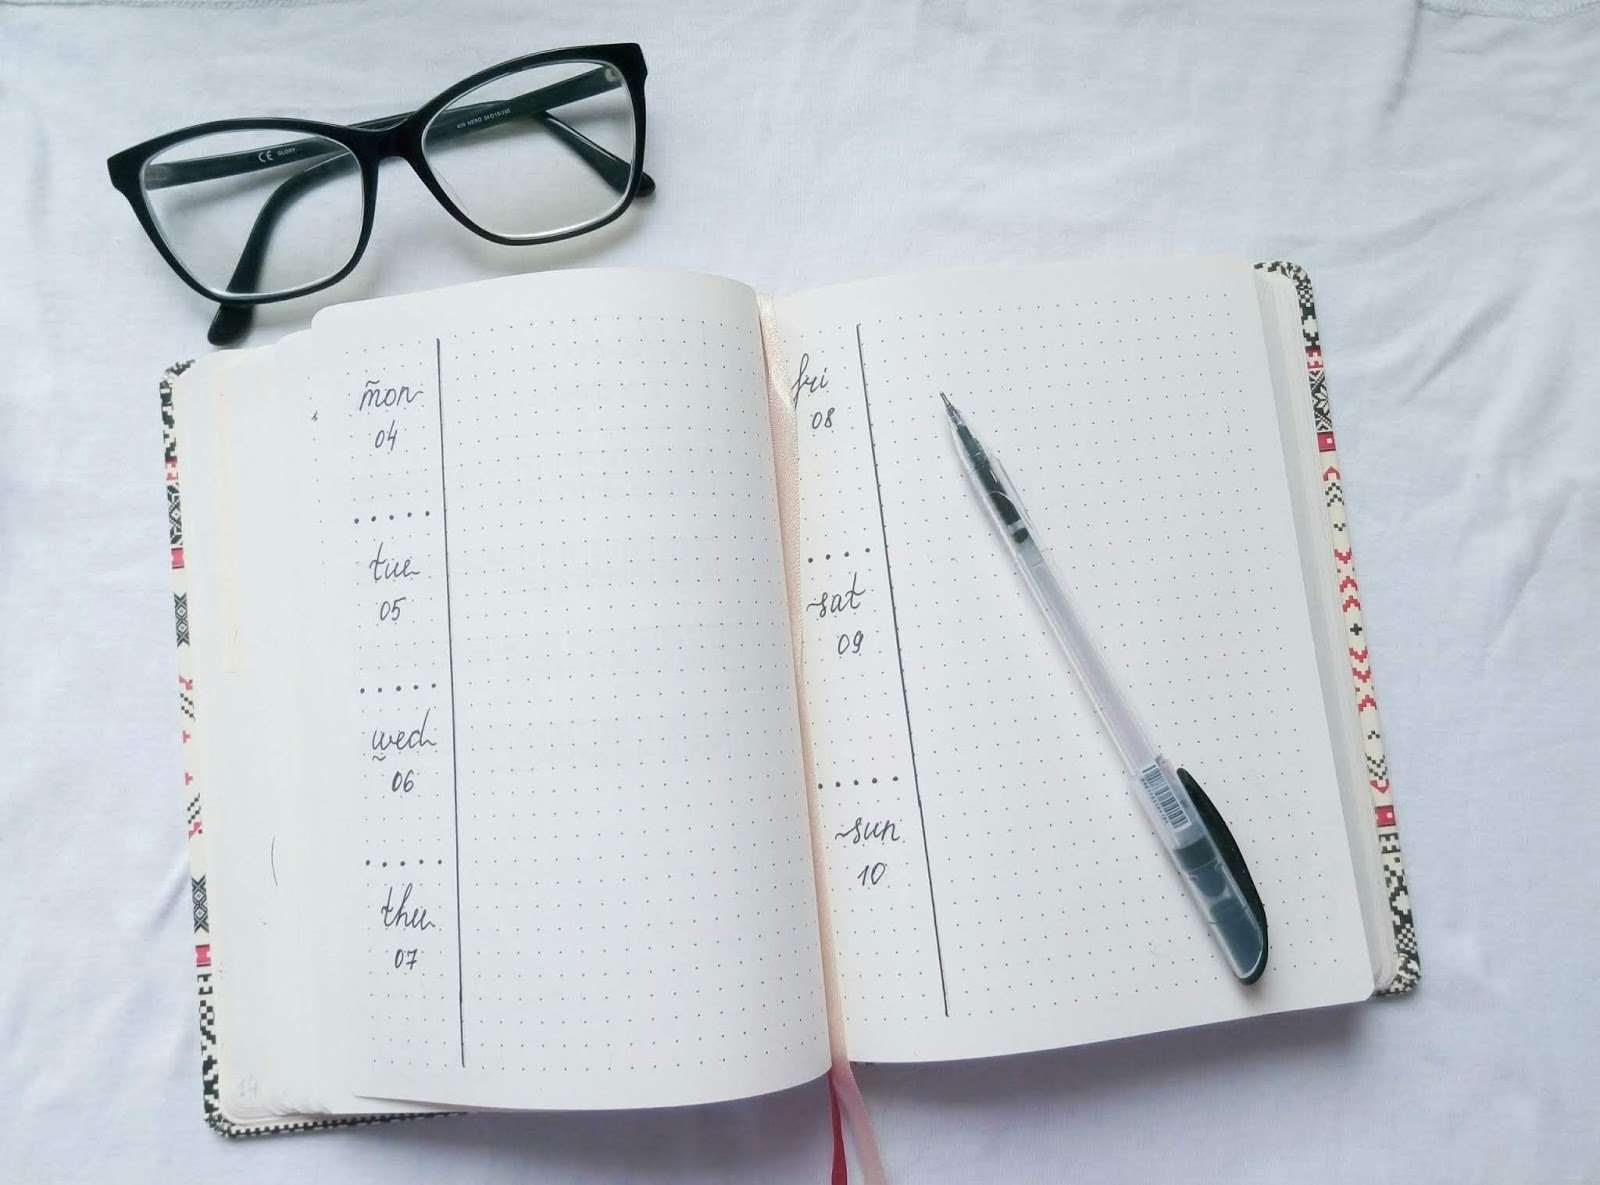 CE GLORY
409 NERO 54□15-140
mon
04
tue
05
wed
06
thu
07
fri
08
sat
09
sun
10
14